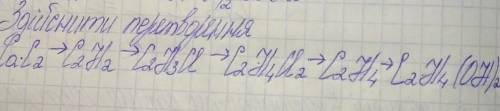 Здійснити перетворення
CaC2 → C2H2 → C2H3Cl → C2H4Cl2 → C2H4 → C2H4(OH)2